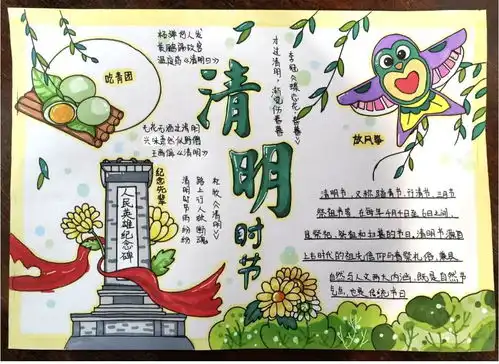 清明时节
柘弹何人发
黄鹂隔故宫
温庭筠《清明日》
吃青团
李冠《蝶恋花春暮》
才过清明,渐觉伤春暮
放风筝
无花无酒过清明
兴味萧然似野僧
王禹偁《清明》
杜牧《清明》
路上行人欲断魂
清明时节雨纷纷
纪念先辈
人民英雄纪念碑
清明节,又称踏青节、行清节、三月节
祭祖节等,在每年4月4日至6日之间,
是祭祀、祭祖和扫墓的节日,清明节源自
上古时代的祖先信仰与春祭礼俗,兼具
自然与人文两大内涵,既是自然节
气点,也是传统节日